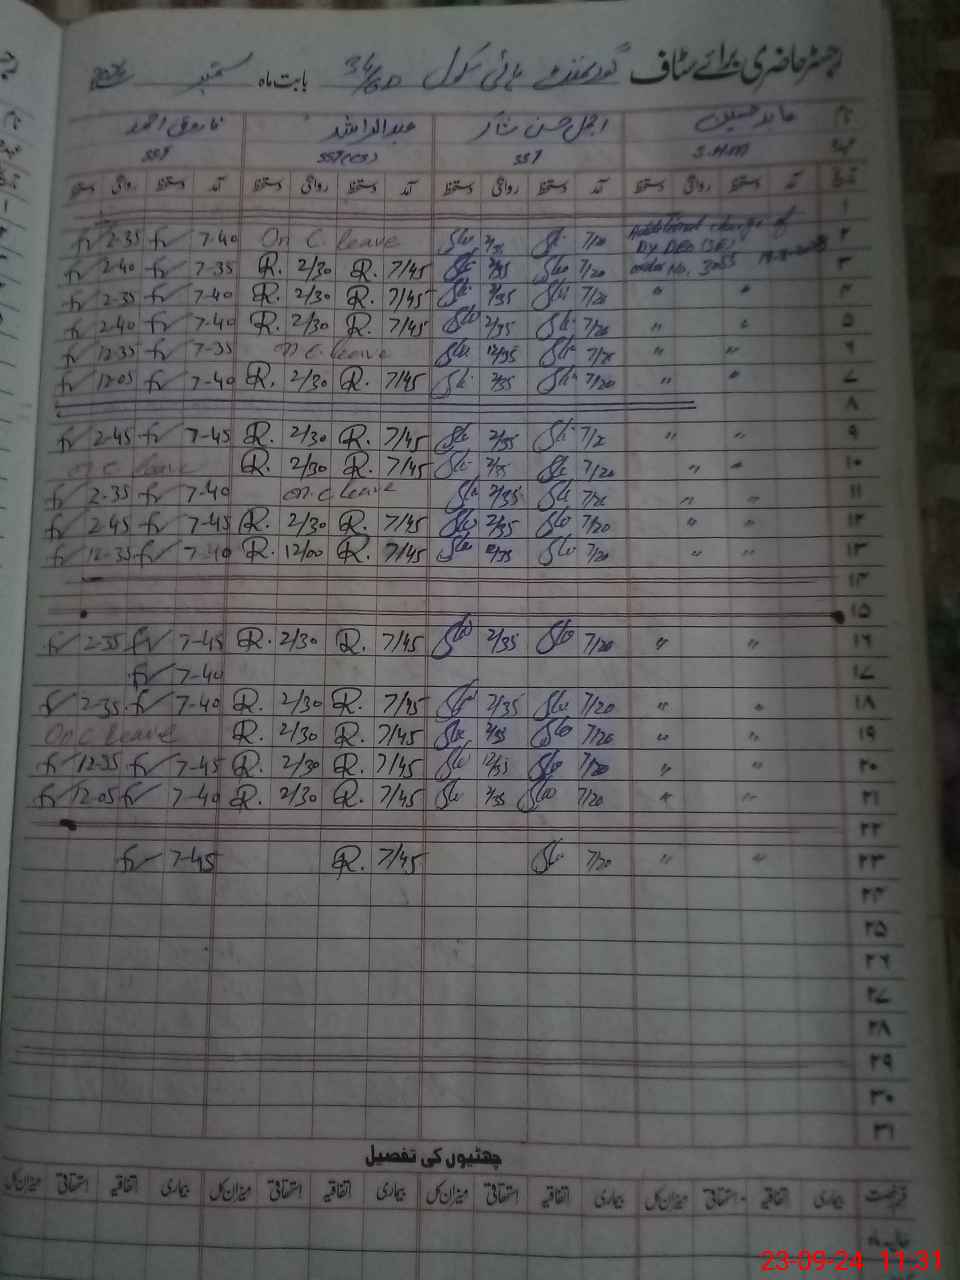 رجسٹر حاضری برائے سٹاف گورنمنٹ ہائی سکول 34/GD بابت ماہ ستمبر
نام عابد حسین اجمل حسن شاکر عبدالراشد فاروق احمد
عہدہ S.H.M SST SST(CS) SST
تاریخ آمد دستخط روانگی دستخط آمد دستخط روانگی دستخط آمد دستخط روانگی دستخط آمد دستخط روانگی دستخط
۱
۲ Additional charge of 7/20 2/35 On C. leave 7-40 2-35
Dy DEO
۳ order No. 3055 7/20 2/35 7/45 R. 2/30 R. 7-35 2-40
۴ " " 7/20 2/35 7/45 R. 2/30 R. 7-40 2-35
۵ " " 7/20 2/35 7/45 R. 2/30 R. 7-40 2-40
۶ " " 7/20 12/35 on C. leave 7-35 12-35
۷ " " 7/20 2/35 7/45 R. 2/30 R. 7-40 12-05
۸
۹ " " 7/20 2/35 7/45 R. 2/30 R. 7-45 2-45
۱۰ " " 7/20 2/35 7/45 R. 2/30 R. on C leave
۱۱ " " 7/20 2/35 on C. leave 7-40 2-35
۱۲ " " 7/20 2/35 7/45 R. 2/30 R. 7-45 2-45
۱۳ " " 7/20 12/35 7/45 R. 12/00 R. 7-40 12-35
۱۴
۱۵
۱۶ " " 7/20 2/35 7/45 R. 2/30 R. 7-45 2-35
۱۷ 7-40
۱۸ " " 7/20 2/35 7/45 R. 2/30 R. 7-40 2-35
۱۹ " " 7/20 2/35 7/45 R. 2/30 R. On C leave
۲۰ " " 7/20 12/35 7/45 R. 2/30 R. 7-45 12-35
۲۱ " " 7/20 2/35 7/45 R. 2/30 R. 7-40 12-05
۲۲
۲۳ " " 7/20 7/45 R. 7-45
۲۴
۲۵
۲۶
۲۷
۲۸
۲۹
۳۰
۳۱
چھٹیوں کی تفصیل
قسم رخصت بیماری اتفاقیہ استحقاقی میزان کل بیماری اتفاقیہ استحقاقی میزان کل بیماری اتفاقیہ استحقاقی میزان کل بیماری اتفاقیہ استحقاقی میزان کل
23-09-24 11:31